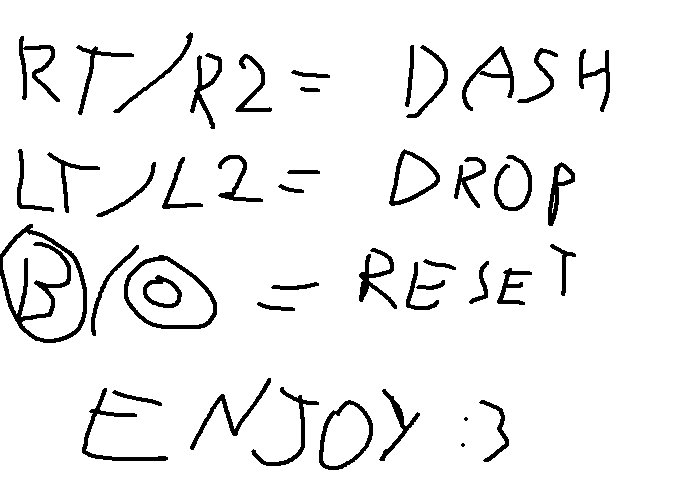 RT/R2= DASH
LT/L2= DROP
Ⓑ/◎ = RESET
ENJOY :3